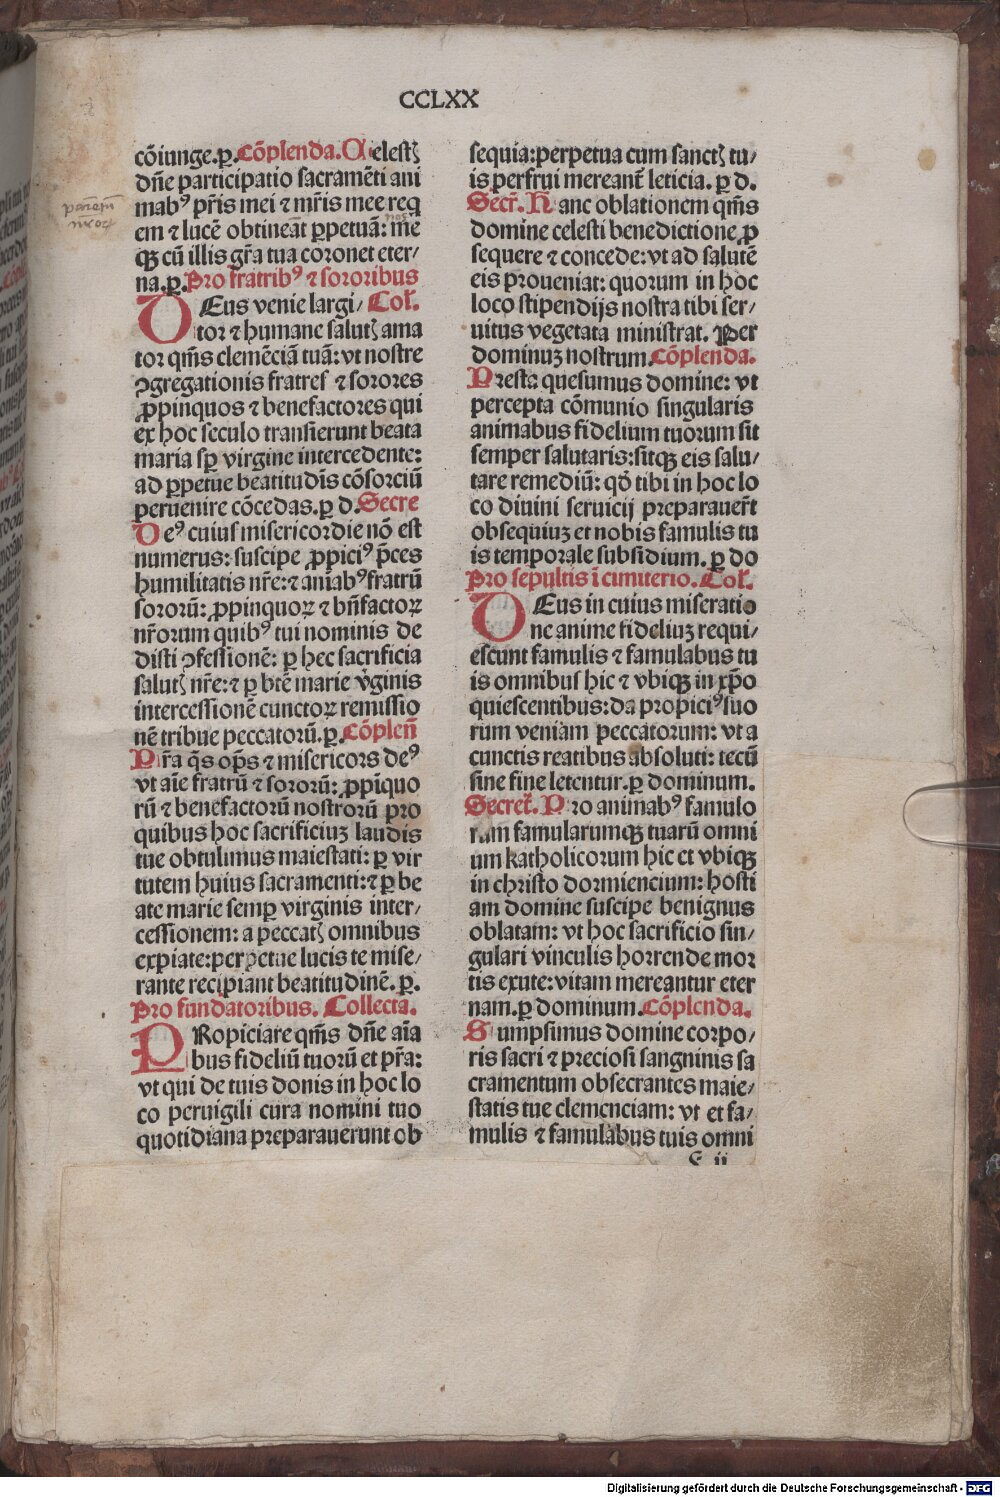 CCLXX
cōiunge.ꝑ. Cōplenda. Celestꝭ
dn̄e participatio sacramēti ani
mabꝰ pr̄is mei ⁊ mr̄is mee req
em ⁊ lucē obtineāt ꝑpetuā: me
nos
qꝫ cū illis gr̄a tua coronet eter⸗
na.ꝑ. Pro fratribꝰ ⁊ sororibus
DEus venie largi⸗ Col̄.
tor ⁊ humane salutꝭ ama
tor qm̄s clemēciā tuā: vt nostre
ꝯgregationis fratres ⁊ sorores
ꝓpinquos ⁊ benefactores qui
ex hoc seculo transierunt beata
maria sꝑ virgine intercedente:
ad ꝑpetue beatitudīs cōsorciū
peruenire cōcedas.ꝑ d. Secre
Deꝰ cuius misericordie nō est
numerus: suscipe ꝓpiciꝰ p̄ces
humilitatis nr̄e: ⁊ aīabꝰ fratrū
sororū: ꝓpinquoꝝ ⁊ bn̄factoꝝ
nr̄orum quibꝰ tui nominis de
disti ꝯfessionē: ꝑ hec sacrificia
salutꝭ nr̄e: ⁊ ꝑ btē marie v̄ginis
intercessionē cunctoꝝ remissio
nē tribue peccatorū.ꝑ. Cōplen̄
Pr̄a qs̄ op̄s ⁊ misericors deꝰ
vt aīe fratrū ⁊ sororū: ꝓpīquo
rū ⁊ benefactorū nostrorū pro
quibus hoc sacrificiuꝫ laudis
tue obtulimus maiestati: ꝑ vir
tutem huius sacramenti: ⁊ ꝑ be
ate marie semꝑ virginis inter⸗
cessionem: a peccatꝭ omnibus
expiate: perpetue lucis te mise⸗
rante recipiant beatitudinē.ꝑ.
Pro fundatoribus. Collecta.
PRopiciare qm̄s dn̄e aīa
bus fideliū tuorū et pr̄a:
vt qui de tuis donis in hoc lo
co peruigili cura nomini tuo
quotidiana preparauerunt ob
sequia: perpetua cum sanctꝭ tu⸗
is perfrui mereant̄ leticia. ꝑ d.
Secr̄. Hanc oblationem qm̄s
domine celesti benedictione ꝓ
sequere ⁊ concede: vt ad salutē
eis proueniat: quorum in hoc
loco stipendijs nostra tibi ser⸗
uitus vegetata ministrat. Per
dominuꝫ nostrum. Cōplenda.
Presta quesumus domine: vt
percepta cōmunio singularis
animabus fidelium tuorum sit
semper salutaris: sitqꝫ eis salu⸗
tare remediū: qd̄ tibi in hoc lo
co diuini seruicij preparauer̄t
obsequiuꝫ et nobis famulis tu
is temporale subsidium. ꝑ do
Pro sepultis ī cimiterio. Col̄.
DEus in cuius miseratio
ne anime fideliuꝫ requi⸗
escunt famulis ⁊ famulabus tu
is omnibus hic ⁊ vbiqꝫ in xp̄o
quiescentibus: da propiciꝰ suo
rum veniam peccatorum: vt a
cunctis reatibus absoluti: tecū
sine fine letentur.ꝑ dominum.
Secret̄. Pro animabꝰ famulo
rum famularumqꝫ tuarū omni
um katholicorum hic et vbiqꝫ
in christo dormiencium: hosti
am domine suscipe benignus
oblatam: vt hoc sacrificio sin⸗
gulari vinculis horrende mor
tis exute: vitam mereantur eter
nam.ꝑ dominum. Cōplenda.
Sumpsimus domine corpo⸗
ris sacri ⁊ preciosi sangninis sa
cramentum obsecrantes maie⸗
statis tue clemenciam: vt et fa⸗
mulis ⁊ famulabus tuis omni
Digitalisierung gefördert durch die Deutsche Forschungsgemeinschaft - DFG